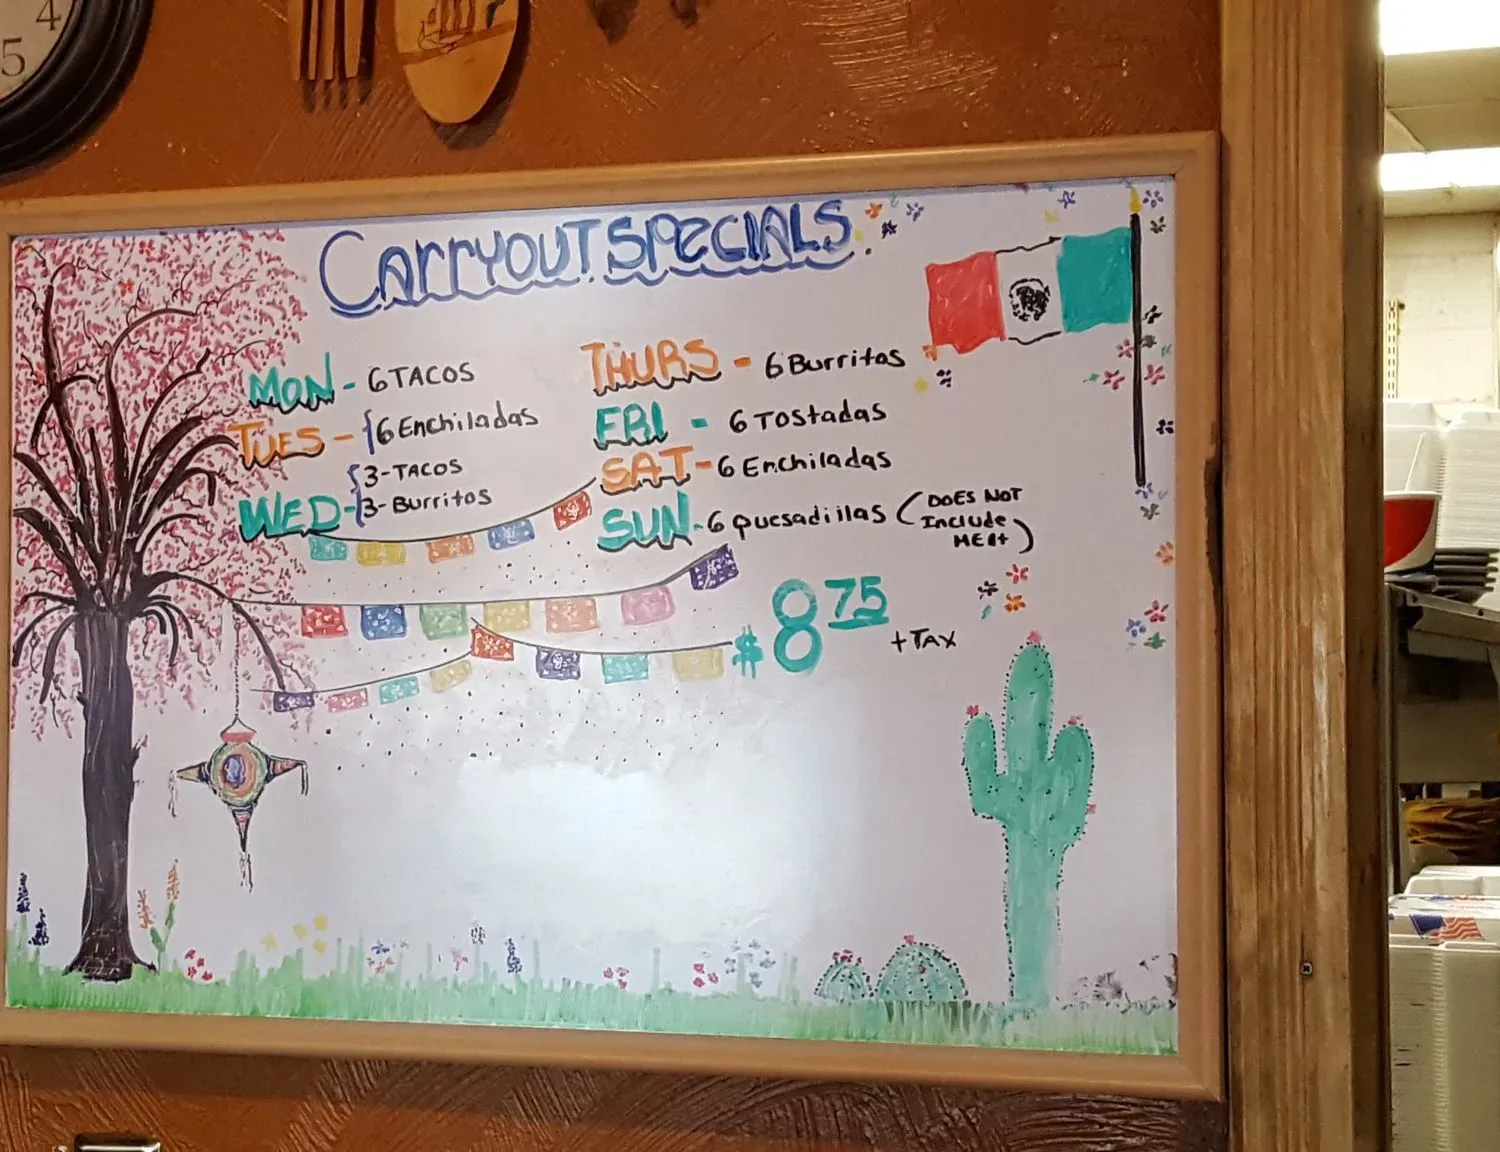 4
5
CArryOUT SPECIALS.
MON - 6 TACOS
TUES - {6 Enchiladas
WED - {3-TACOS
3-Burritos
THURS - 6 Burritos
FRI - 6 Tostadas
SAT - 6 Enchiladas
SUN - 6 Quesadillas (DOES NOT
Include
MEAt)
$8 75
+TAX